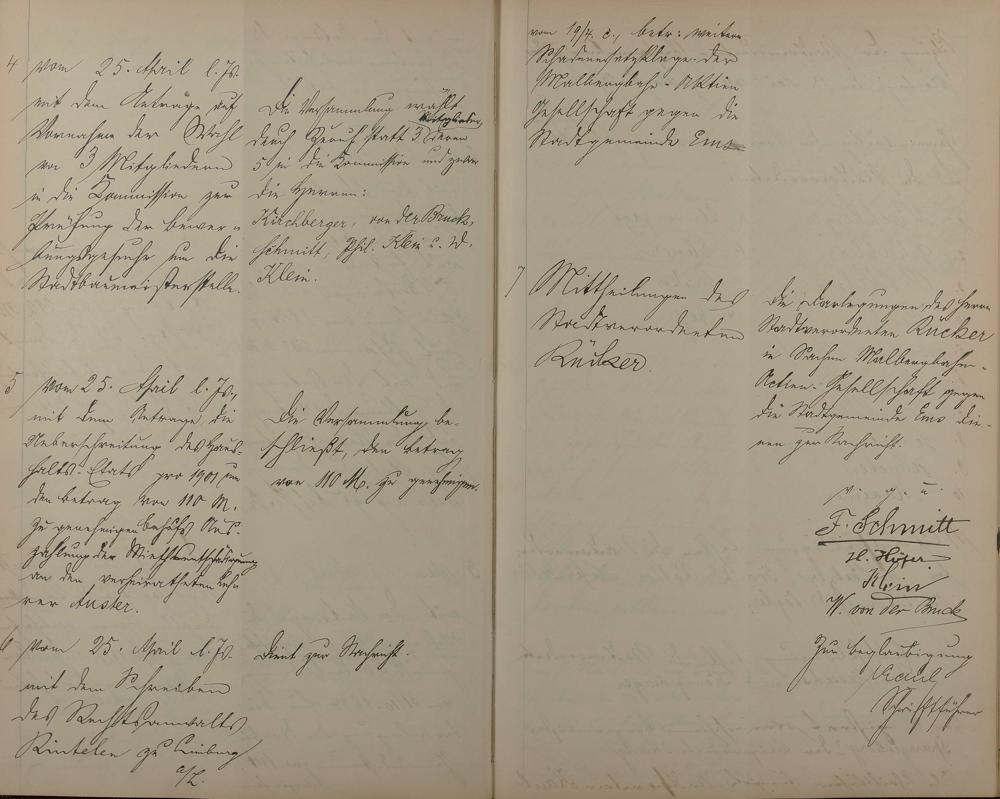 4 Vom 25. April l. Js.
mit dem Antrage auf
Vornahme der Wahl
von 3 Mitgliedern
in die Kommission zur
Prüfung der Bewer-
bungsgesuche um die
Stadtbaumeisterstelle.
Die Versammlung wählt
durch Zuruf statt 3 Mitglieder, deren
5 in die Kommission und zwar
die Herren:
Kirchberger, von der Bruck,
Schmitt, Phil. Klein u. W.
Klein.
5 Vom 25. April l. Js.,
mit dem Antrage, die
Ueberschreitung des Haus-
halts-Etats pro 1901 um
den Betrag von 110 M.
zu genehmigen behufs Aus-
zahlung der Miethsentschädigung
an den verheiratheten Leh-
rer Anster.
Die Versammlung be-
schließt, den Betrag
von 110 M. zu genehmigen.
6 Vom 25. April l. Js.
mit dem Schreiben
des Rechtsanwalts
Rintelen zu Limburg
a/L.
Dient zur Nachricht.
vom 19/4. c., betr: weitere
Schadenersatzklage der
Malbergbahn-Aktien
Gesellschaft gegen die
Stadtgemeinde Ems
7 Mittheilungen des
Stadtverordneten
Rücker.
Die Darlegungen des Herrn
Stadtverordneten Rücker
in Sachen Malbergbahn-
Actien-Gesellschaft gegen
die Stadtgemeinde Ems die-
nen zur Nachricht.
v. g. u.
F. Schmitt
H. Höfer
Klein
W. von der Bruck
Zur Beglaubigung
Schriftführer